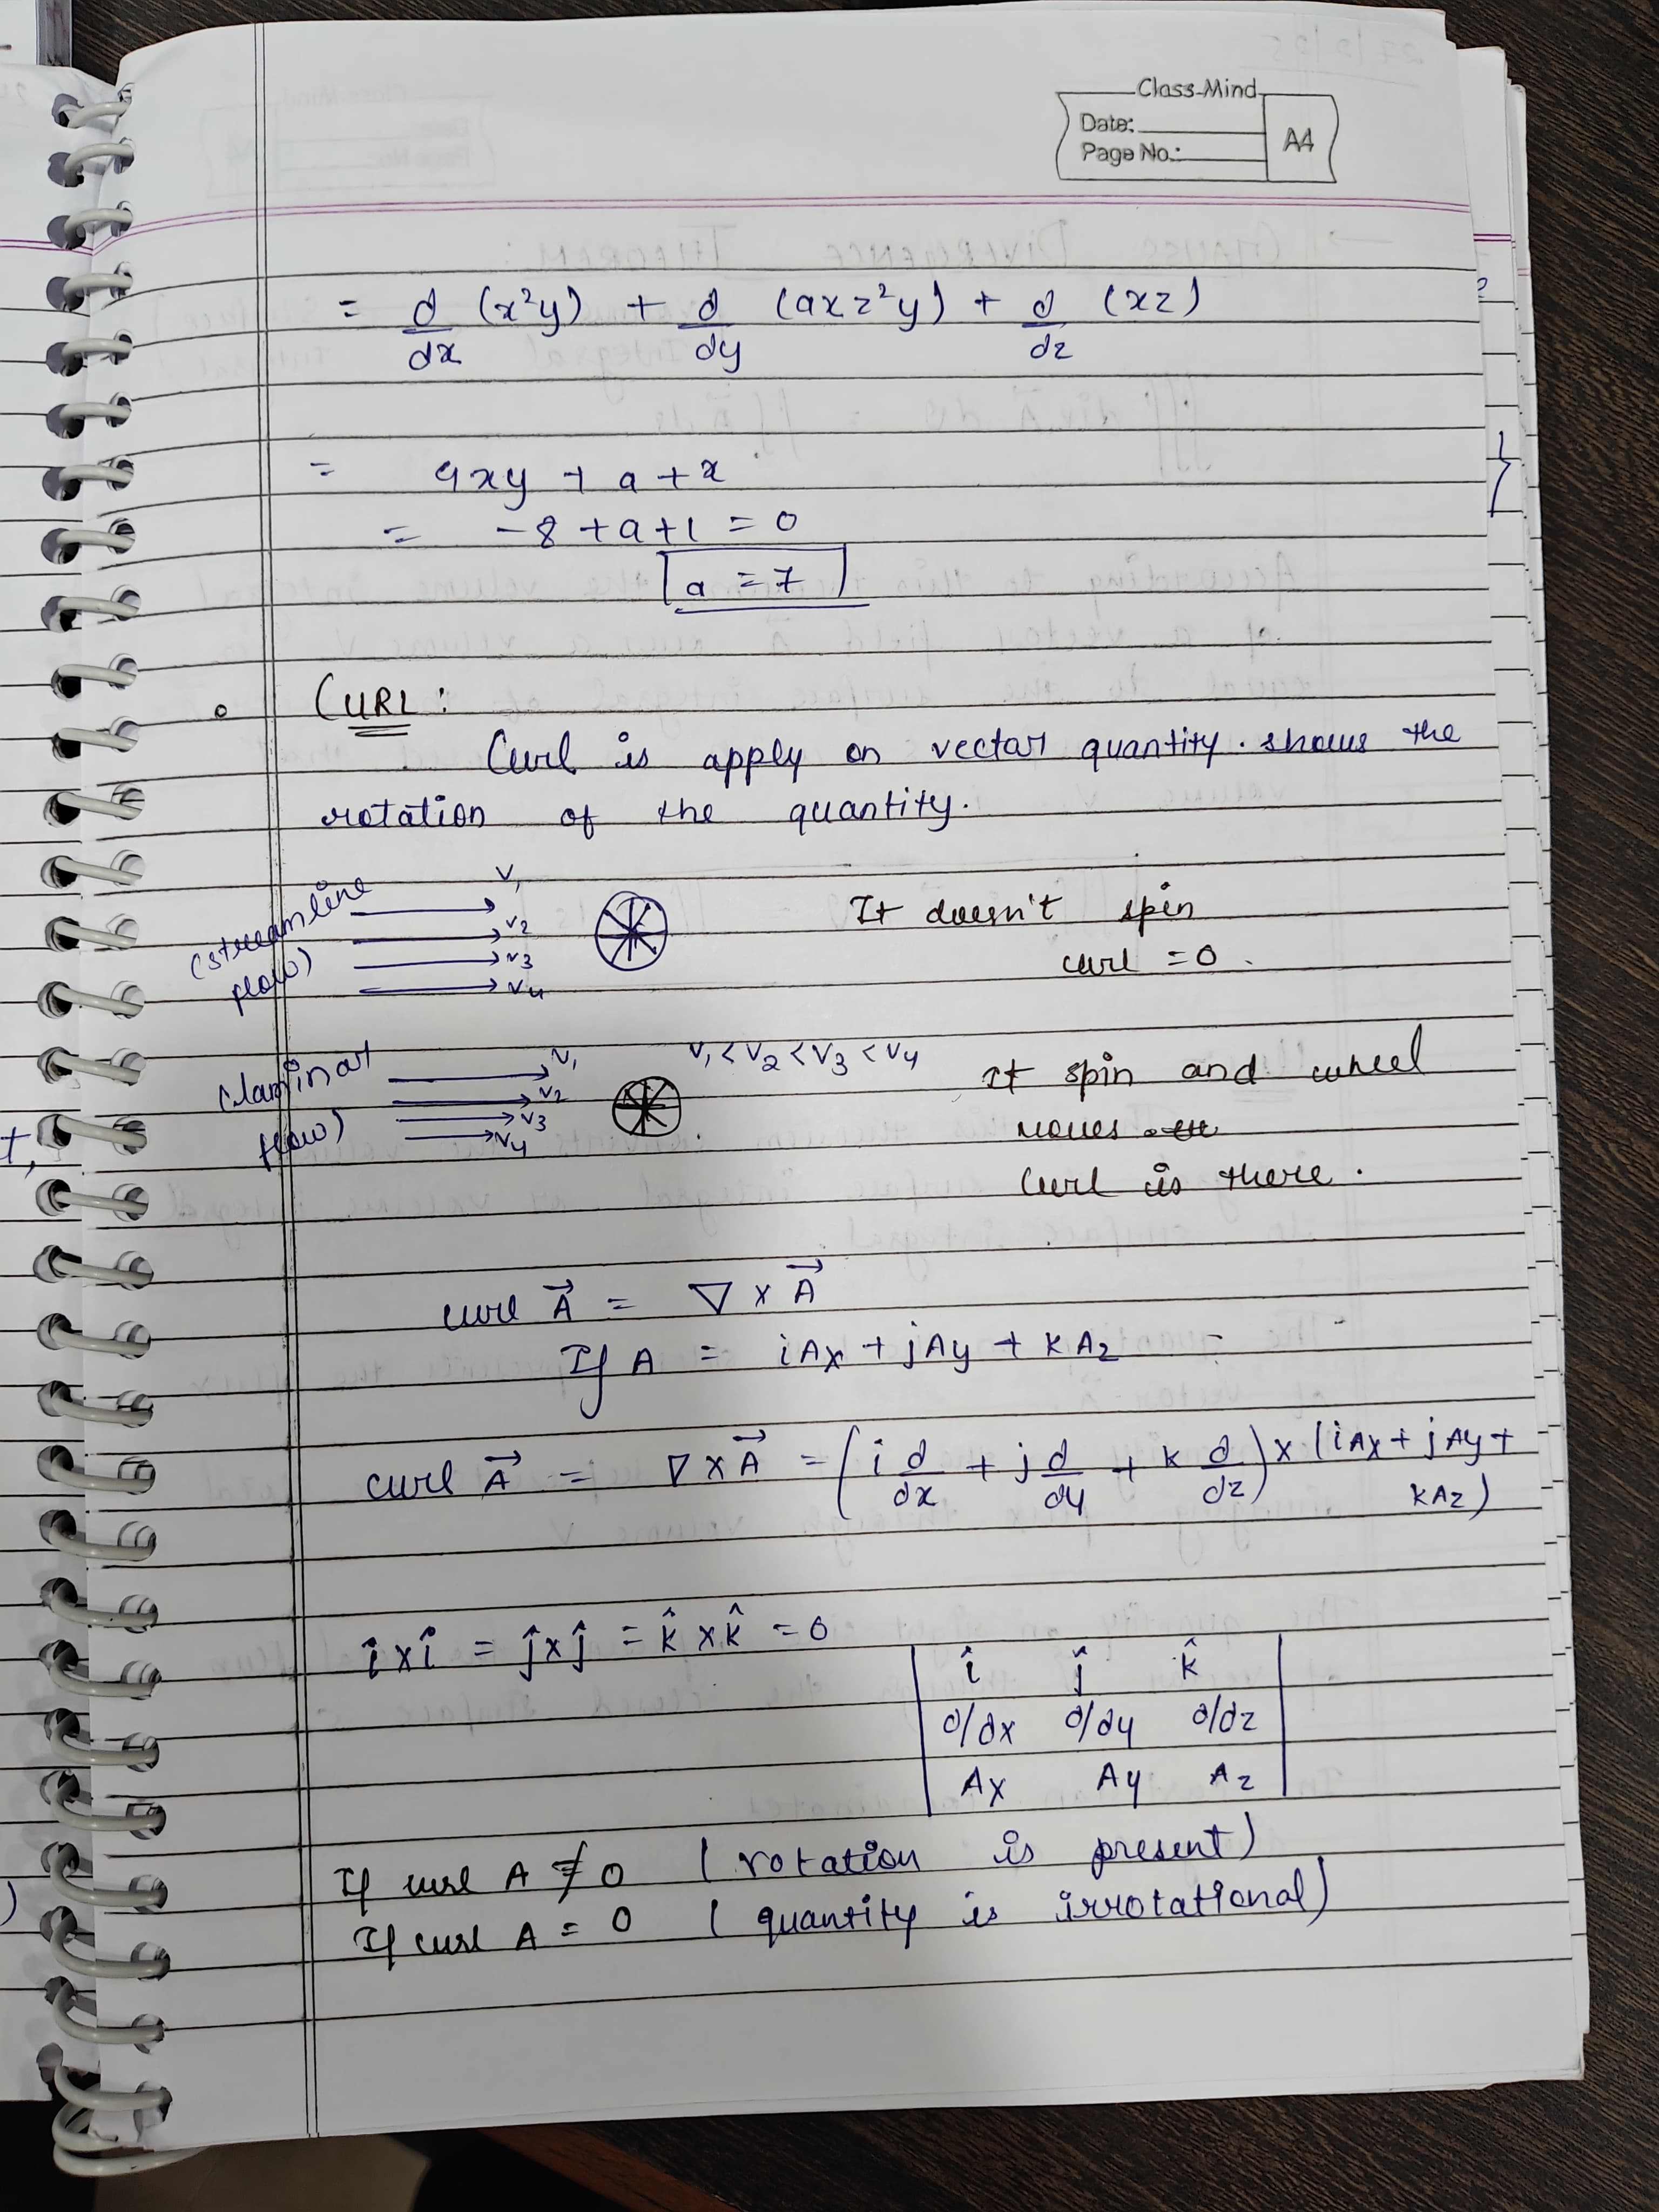 Class-Mind
Date:
Page No.:
A4
= d/dx (x²y) + d/dy (axz²y) + d/dz (xz)
= 4xy + a + x
= -8 + a + 1 = 0
a = 7
CURL:
Curl is apply on vector quantity. shows the
rotation of the quantity.
(streamline
flow)
V1
V2
V3
V4
It doesn't spin
curl = 0.
(laminar
flow)
V1
V2
V3
V4
V1 < V2 < V3 < V4
It spin and wheel
moves
Curl is there.
curl A⃗ = ∇ × A⃗
If A = iAx + jAy + kAz
curl A⃗ = ∇ × A⃗ = (i d/dx + j d/dy + k d/dz) × (iAx + jAy +
kAz)
î×î = ĵ×ĵ = k̂×k̂ = 0
î ĵ k̂
d/dx d/dy d/dz
Ax Ay Az
If curl A ≠ 0 (rotation is present)
If curl A = 0 (quantity is irrotational)